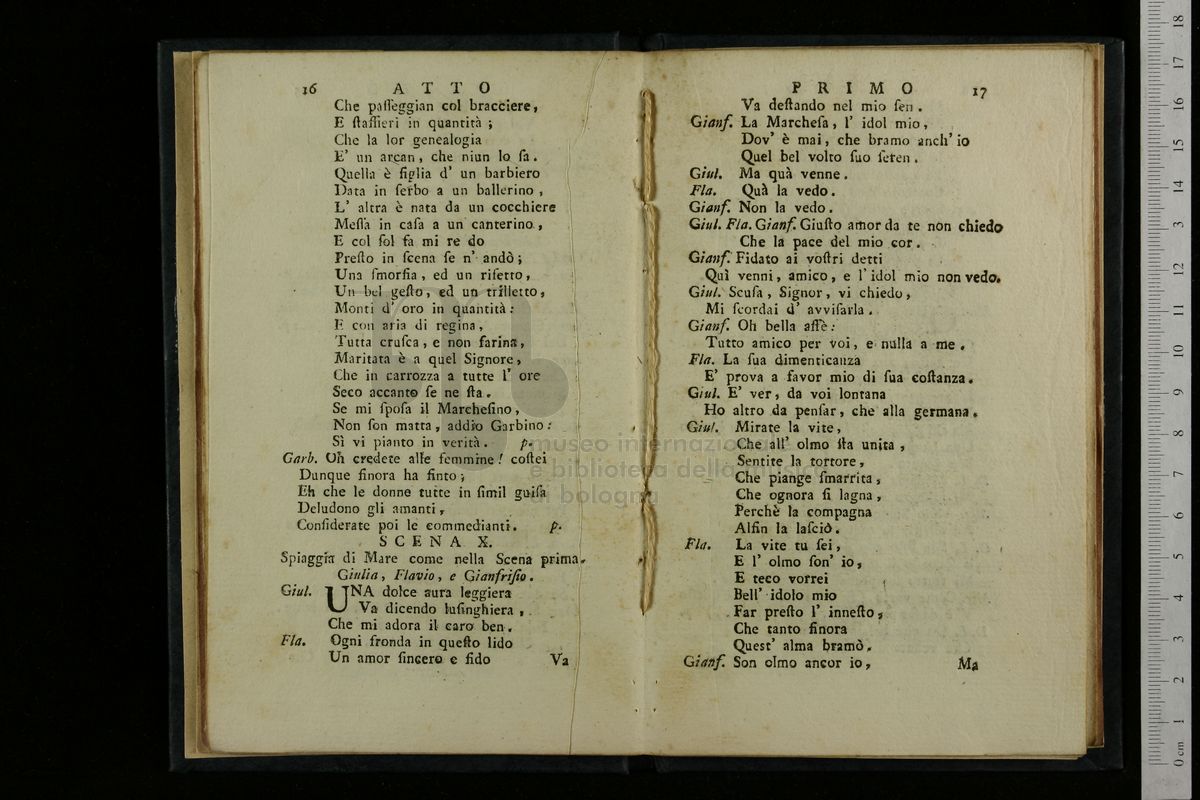 16 ATTO
Che paſſeggian col bracciere,
E ſtaffieri in quantità ;
Che la lor genealogia
E' un arcan, che niun lo ſa.
Quella è figlia d' un barbiero
Data in ſerbo a un ballerino ,
L' altra è nata da un cocchiere
Meſſa in caſa a un canterino,
E col ſol fa mi re do
Preſto in ſcena ſe n' andò ;
Una ſmorfia, ed un riſetto,
Un bel geſto, ed un trilletto,
Monti d' oro in quantità :
E con aria di regina,
Tutta cruſca, e non farina,
Maritata è a quel Signore,
Che in carrozza a tutte l' ore
Seco accanto ſe ne ſta.
Se mi ſpoſa il Marcheſino,
Non ſon matta, addio Garbino :
Sì vi pianto in verità. p.
Garb. Oh credete alle femmine ! coſtei
Dunque finora ha finto ;
Eh che le donne tutte in ſimil guiſa
Deludono gli amanti,
Conſiderate poi le commedianti. p.
SCENA X.
Spiaggia di Mare come nella Scena prima.
Giulia, Flavio, e Gianfriſio.
Giul. UNA dolce aura leggiera
Va dicendo luſinghiera ,
Che mi adora il caro ben.
Fla. Ogni fronda in queſto lido
Un amor ſincero e fido
Va
PRIMO 17
Va deſtando nel mio ſen .
Gianf. La Marcheſa, l' idol mio,
Dov' è mai, che bramo anch' io
Quel bel volto ſuo ſeren .
Giul. Ma quà venne .
Fla. Quà la vedo.
Gianf. Non la vedo.
Giul. Fla. Gianf. Giuſto amor da te non chiedo
Che la pace del mio cor.
Gianf. Fidato ai voſtri detti
Quì venni, amico, e l' idol mio non vedo.
Giul. Scuſa, Signor, vi chiedo,
Mi ſcordai d' avviſarla .
Gianf. Oh bella affè :
Tutto amico per voi, e nulla a me .
Fla. La ſua dimenticanza
E' prova a favor mio di ſua coſtanza.
Giul. E' ver, da voi lontana
Ho altro da penſar, che alla germana.
Giul. Mirate la vite,
Che all' olmo ſta unita ,
Sentite la tortore,
Che piange ſmarrita ,
Che ognora ſi lagna ,
Perchè la compagna
Alfin la laſciò.
Fla. La vite tu ſei,
E l' olmo ſon' io,
E teco vorrei
Bell' idolo mio
Far preſto l' inneſto,
Che tanto finora
Queſt' alma bramò.
Gianf. Son olmo ancor io,
Ma
museo internazionale
e biblioteca della musica
di bologna
0 cm 1 2 3 4 5 6 7 8 9 10 11 12 13 14 15 16 17 18